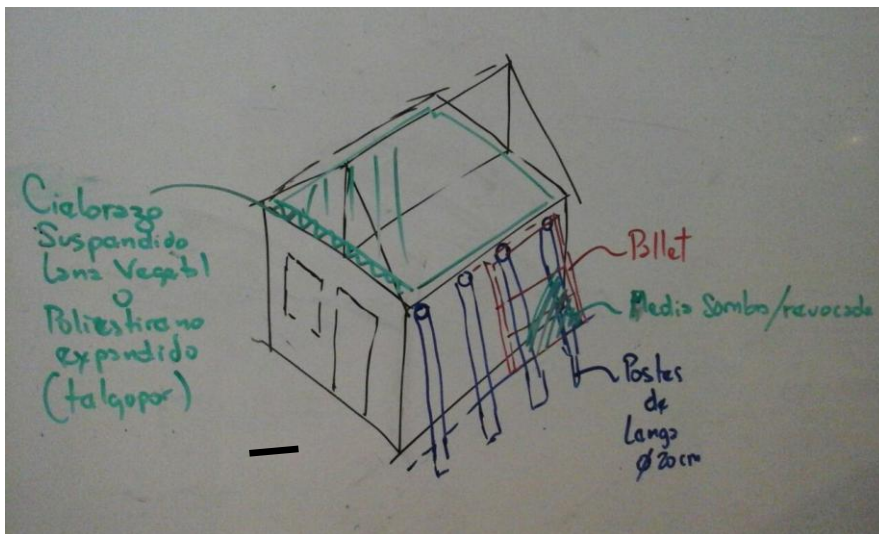 Cielorazo
Suspandido
Lana Vegetal
O
Poliestireno
expandido
(talgopor)
Pallet
Media Sombra/revocada
Postes
de
Langa
Ø 20cm